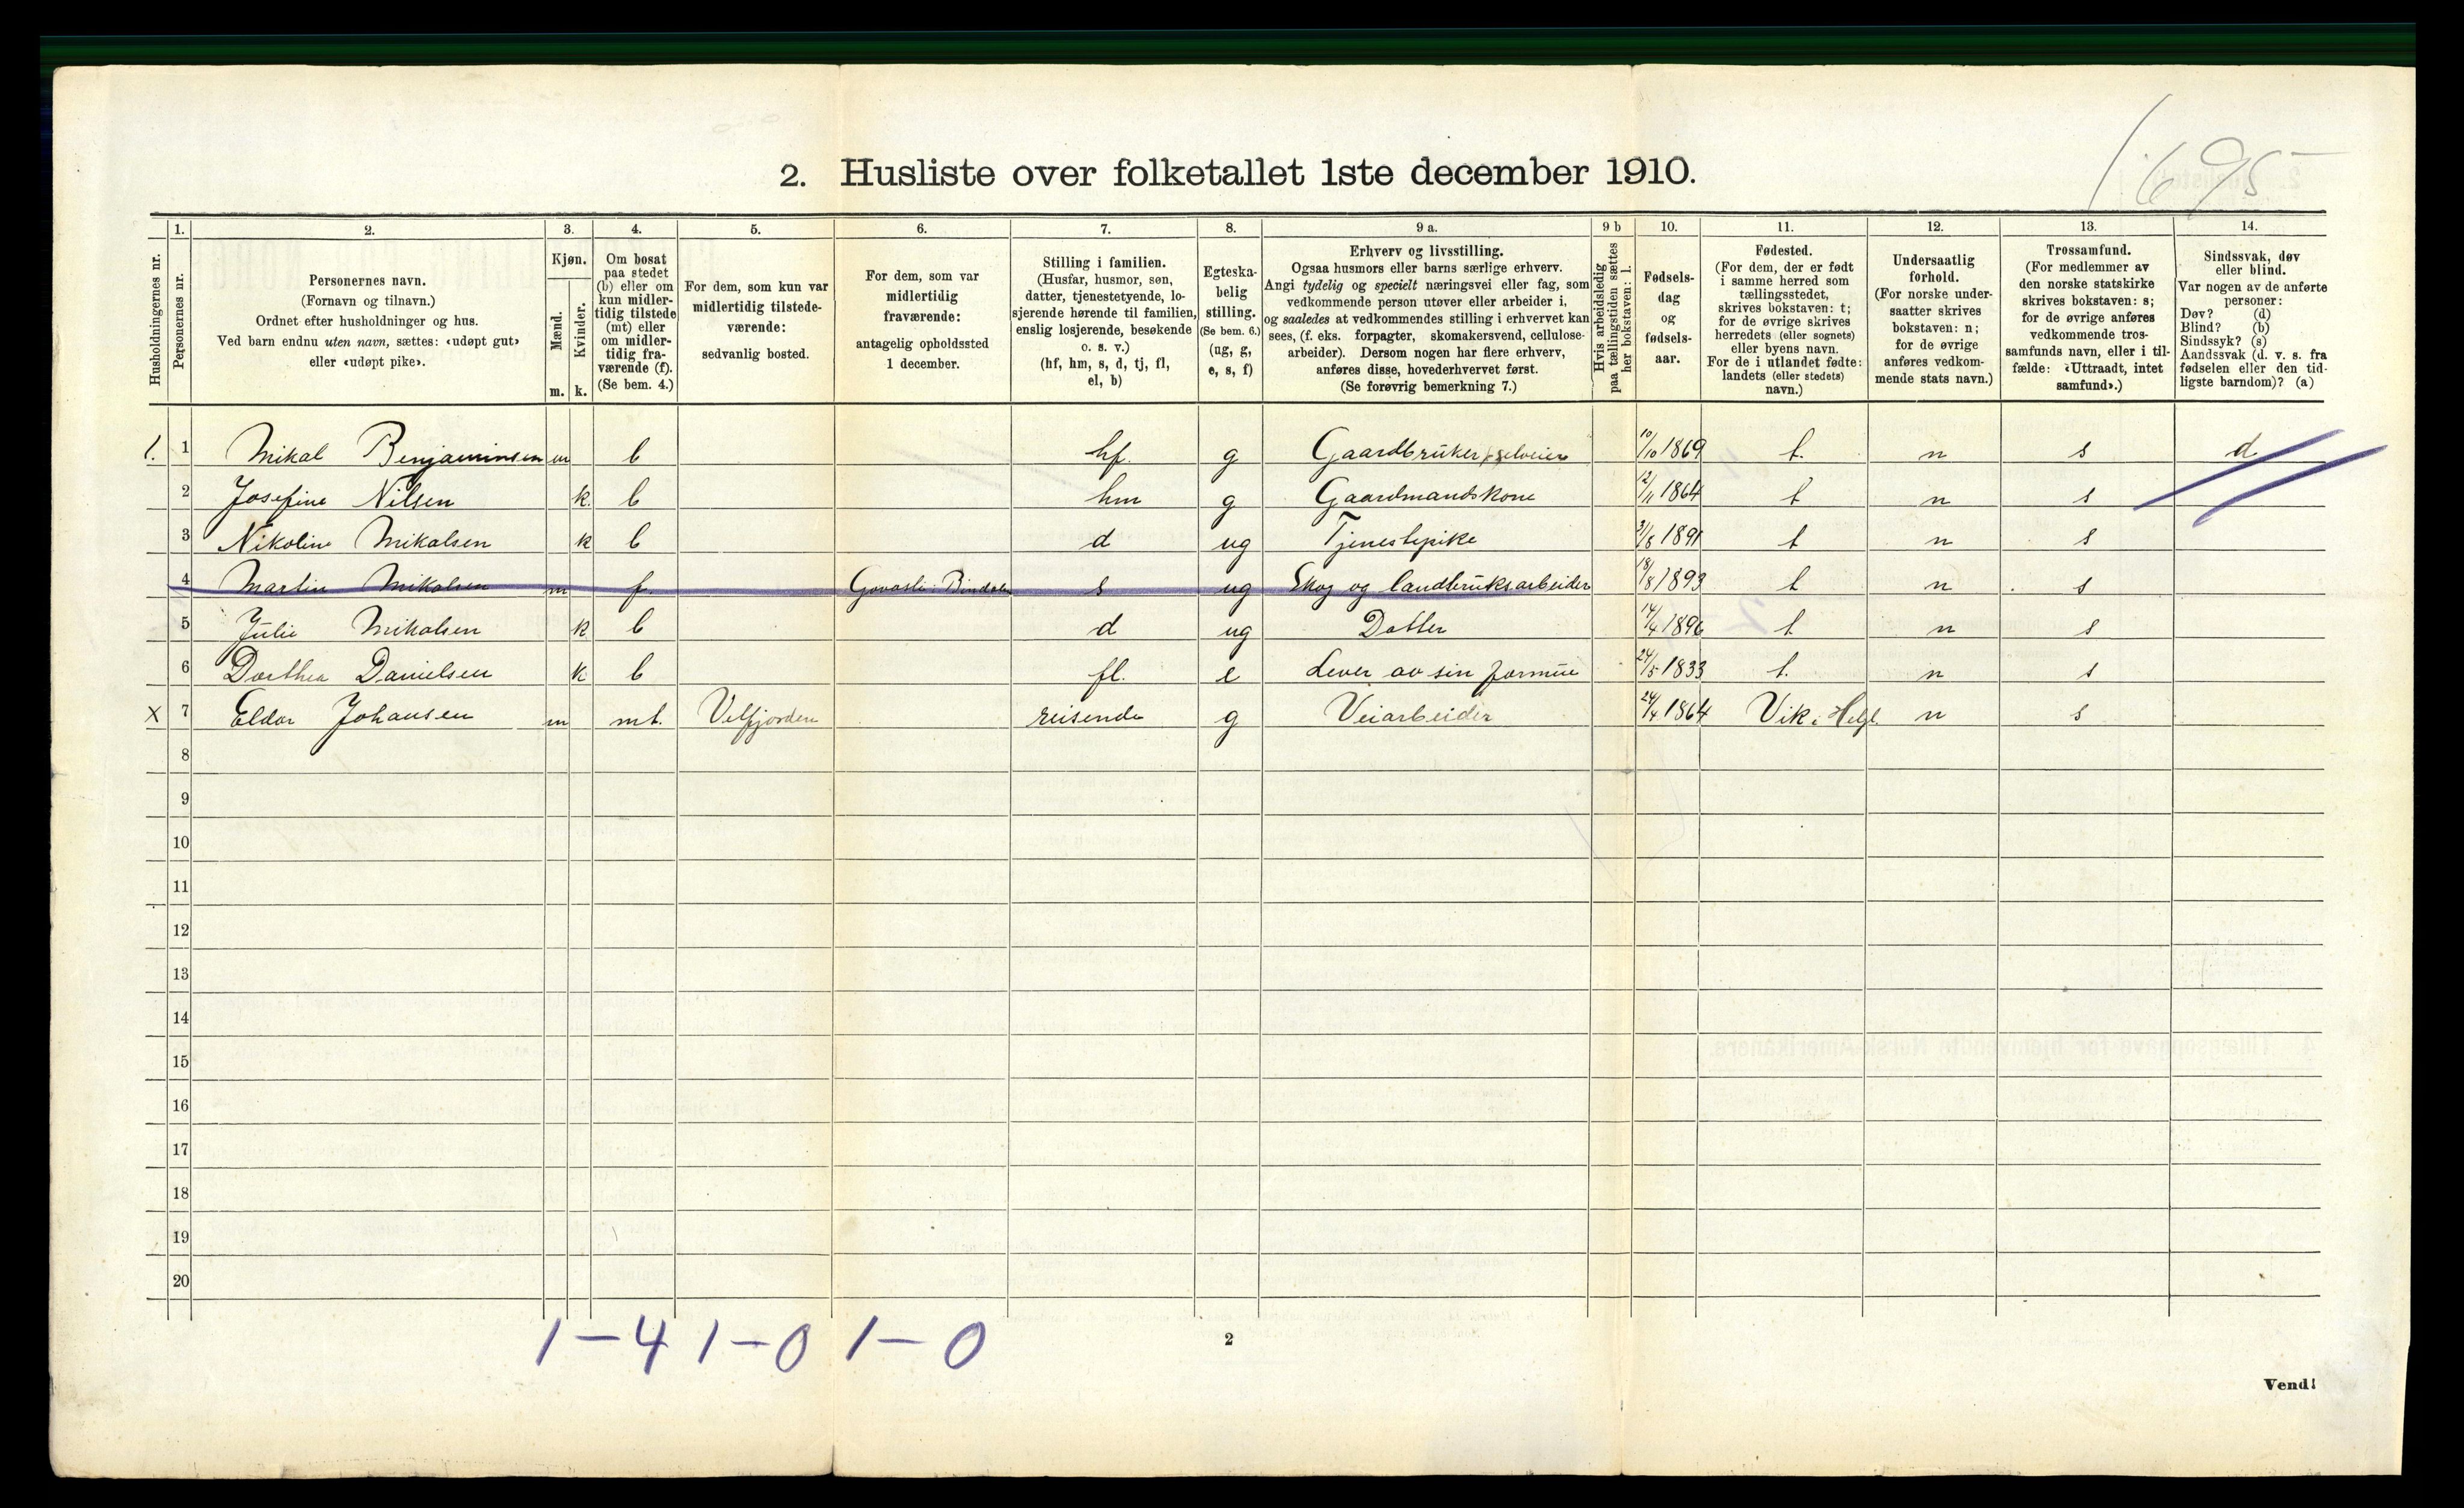 1695
2. Husliste over folketallet 1ste december 1910.
Husholdningernes nr.
1. Personernes nr.
2. Personernes navn.
(Fornavn og tilnavn.)
Ordnet efter husholdninger og hus.
Ved barn endnu uten navn, sættes: «udøpt gut»
eller «udøpt pike».
3. Kjøn.
Mænd. m.
Kvinder. k.
4. Om bosat
paa stedet
(b) eller om
kun midler-
tidig tilstede
(mt) eller
om midler-
tidig fra-
værende (f).
(Se bem. 4.)
5. For dem, som kun var
midlertidig tilstede-
værende:
sedvanlig bosted.
6. For dem, som var
midlertidig
fraværende:
antagelig opholdssted
1 december.
7. Stilling i familien.
(Husfar, husmor, søn,
datter, tjenestetyende, lo-
sjerende hørende til familien,
enslig losjerende, besøkende
o. s. v.)
(hf, hm, s, d, tj, fl,
el, b)
8. Egteska-
belig
stilling.
(Se bem. 6.)
(ug, g,
e, s, f)
9 a. Erhverv og livsstilling.
Ogsaa husmors eller barns særlige erhverv.
Angi tydelig og specielt næringsvei eller fag, som
vedkommende person utøver eller arbeider i,
og saaledes at vedkommendes stilling i erhvervet kan
sees, (f. eks. forpagter, skomakersvend, cellulose-
arbeider). Dersom nogen har flere erhverv,
anføres disse, hovederhvervet først.
(Se forøvrig bemerkning 7.)
9 b Hvis arbeidsledig
paa tællingstiden sættes
her bokstaven: l.
10. Fødsels-
dag
og
fødsels-
aar.
11. Fødested.
(For dem, der er født
i samme herred som
tællingsstedet,
skrives bokstaven: t;
for de øvrige skrives
herredets (eller sognets)
eller byens navn.
For de i utlandet fødte:
landets (eller stedets)
navn.)
12. Undersaatlig
forhold.
(For norske under-
saatter skrives
bokstaven: n;
for de øvrige
anføres vedkom-
mende stats navn.)
13. Trossamfund.
(For medlemmer av
den norske statskirke
skrives bokstaven: s;
for de øvrige anføres
vedkommende tros-
samfunds navn, eller i til-
fælde: «Uttraadt, intet
samfund».)
14. Sindssvak, døv
eller blind.
Var nogen av de anførte
personer:
Døv? (d)
Blind? (b)
Sindssyk? (s)
Aandssvak (d. v. s. fra
fødselen eller den tid-
ligste barndom)? (a)
1. 1 Mikal Benjaminsen m b hf. g Gaardbruker, selveier 10/10 1869 t. n s d
2 Josefine Nilsen k. b hm g Gaardmandskone 12/11 1864 t n s
3 Nikoline Mikalsen k b d ug Tjenestepike 3/8 1891 t n s
4 Martin Mikalsen m f. Bindalen s ug Skog og landbruksarbeider 18/8 1893 t n s
5 Julie Mikalsen k b d ug Datter 14/4 1896 t n s
6 Dorthea Danielsen k b fl. e Lever av sin formue 24/5 1833 t. n s
X 7 Eldor Johansen m mt. Velfjorden reisende g Veiarbeider 24/4 1864 Vik i Helgl. n s
8
9
10
11
12
13
14
15
16
17
18
19
20
1-4 1-0 1-0
2
Vend!